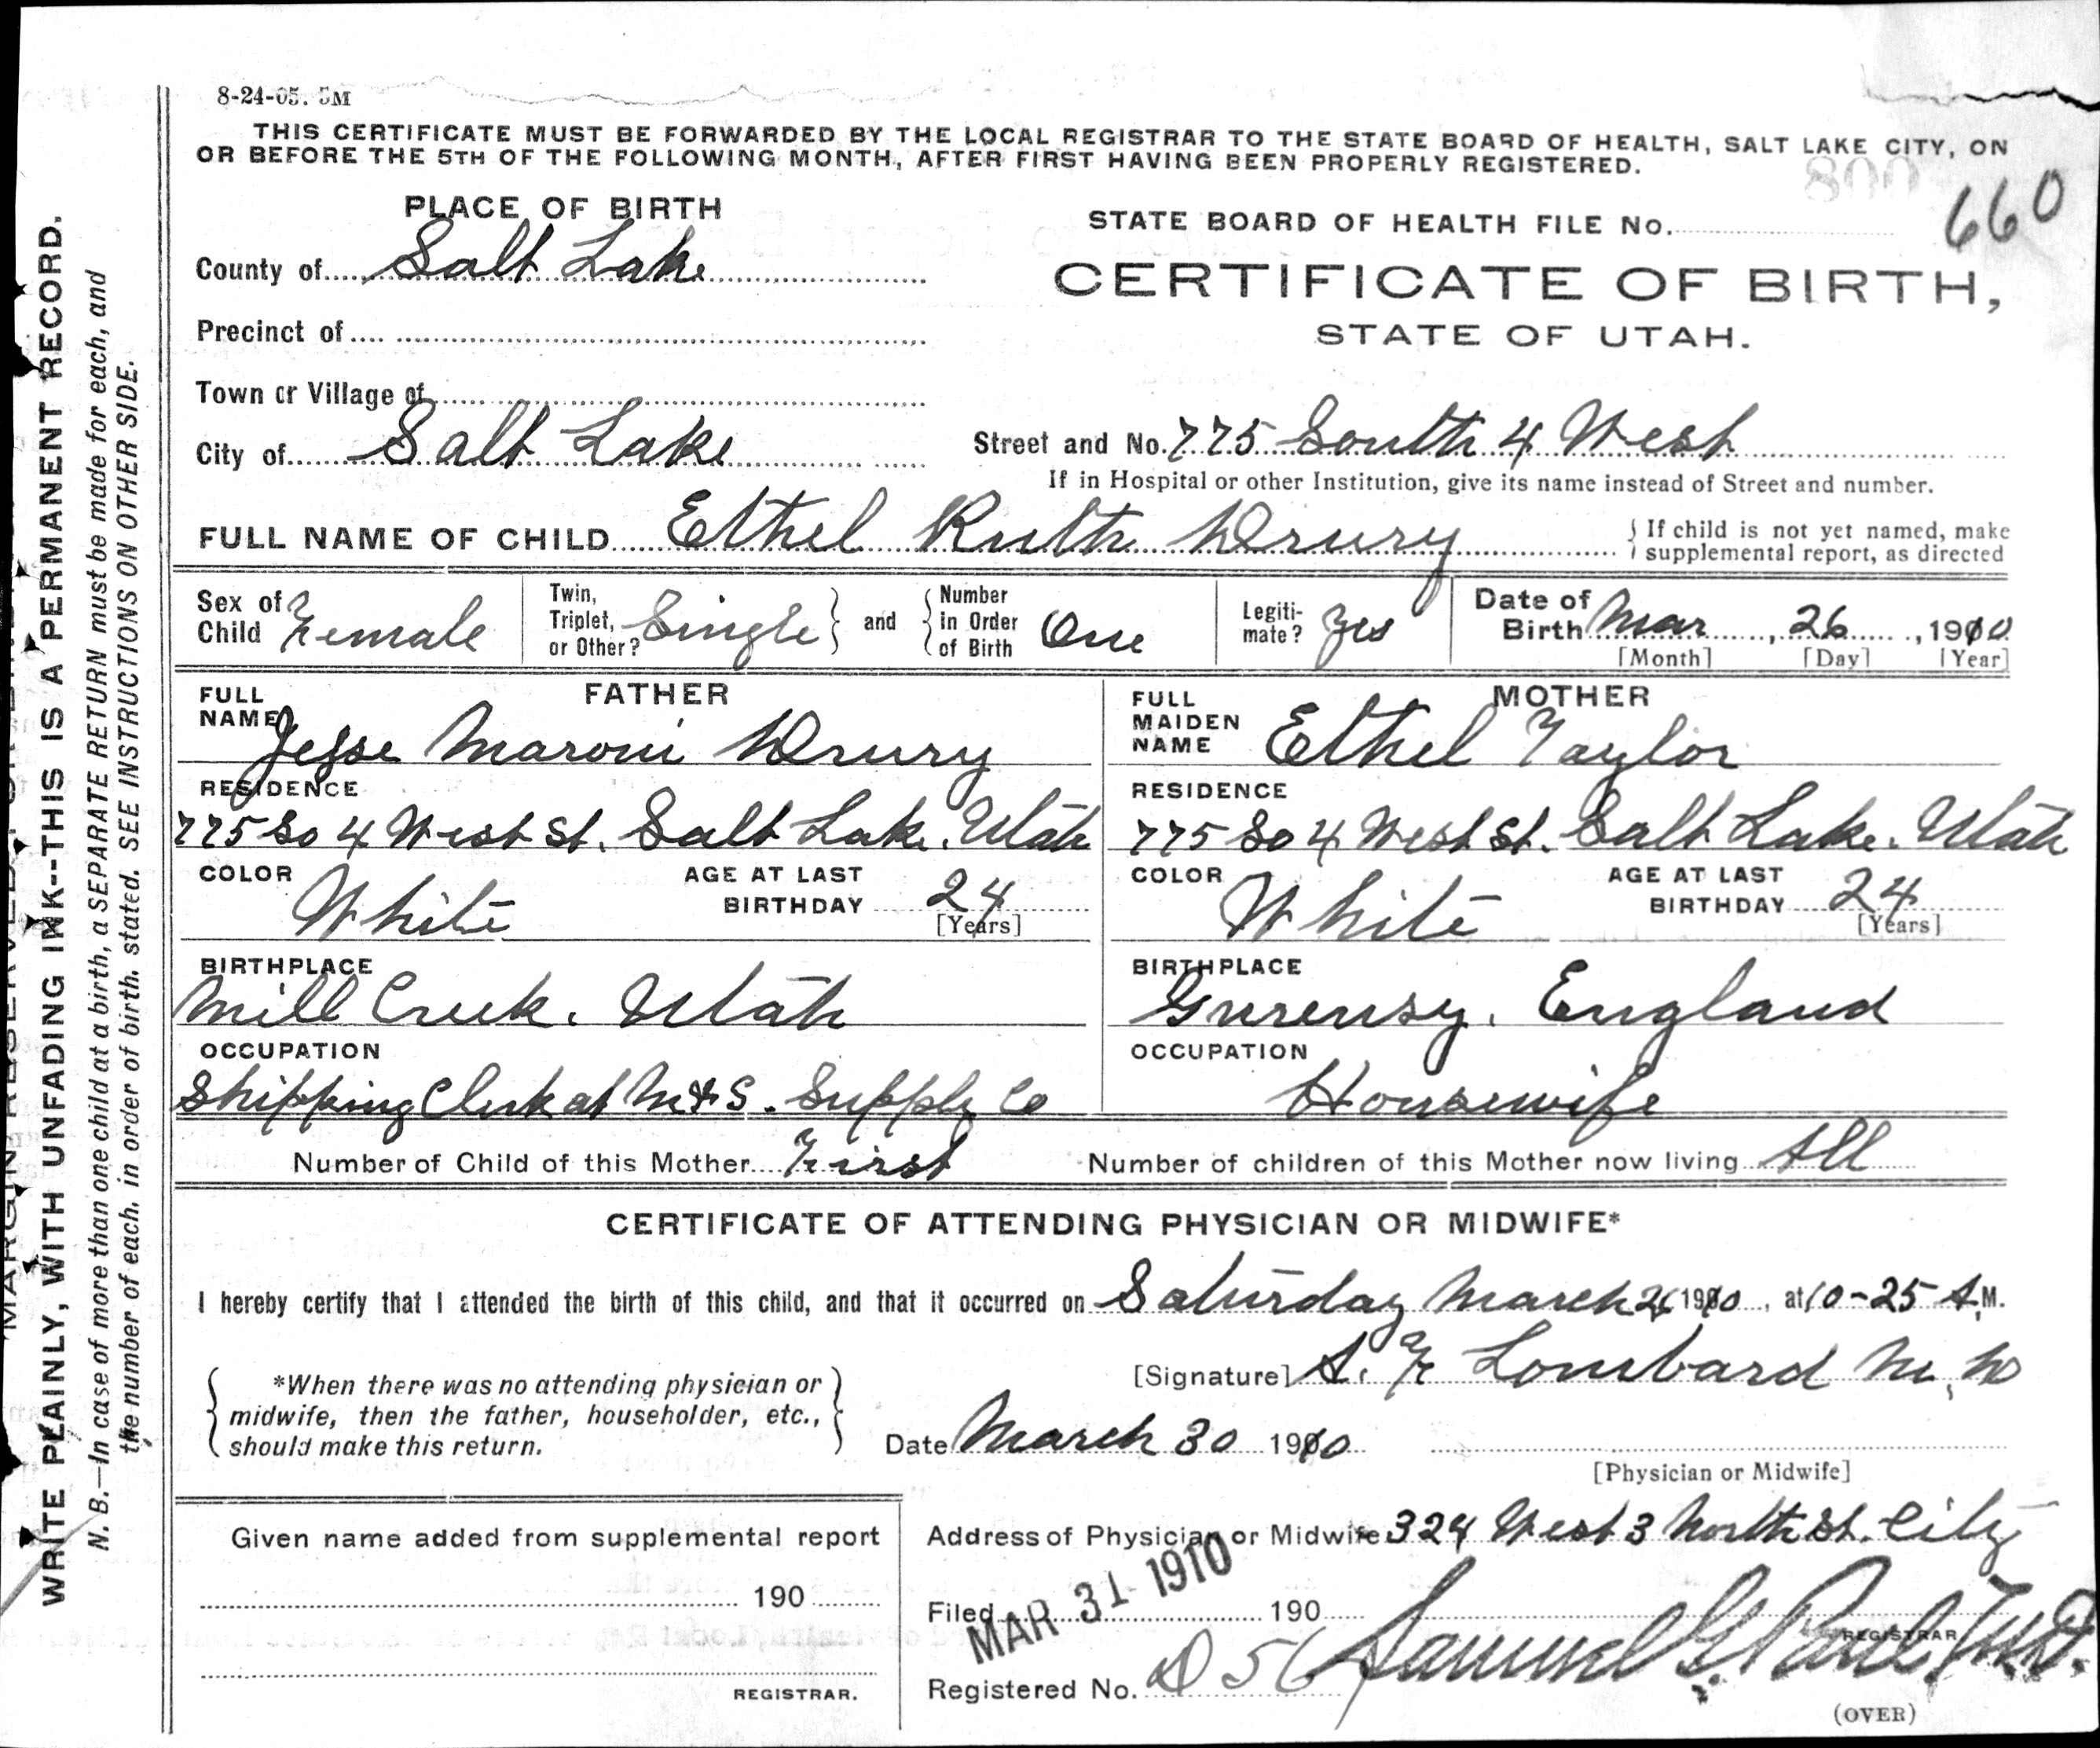 8-24-05. 5M
THIS CERTIFICATE MUST BE FORWARDED BY THE LOCAL REGISTRAR TO THE STATE BOARD OF HEALTH, SALT LAKE CITY, ON
OR BEFORE THE 5TH OF THE FOLLOWING MONTH, AFTER FIRST HAVING BEEN PROPERLY REGISTERED.
800
PLACE OF BIRTH
STATE BOARD OF HEALTH FILE No. 660
County of Salt Lake
CERTIFICATE OF BIRTH,
STATE OF UTAH.
Precinct of
Town or Village of
City of Salt Lake
Street and No. 775 South 4 West
If in Hospital or other Institution, give its name instead of Street and number.
FULL NAME OF CHILD Ethel Ruth Drury
If child is not yet named, make
supplemental report, as directed
Sex of
Child Female
Twin,
Triplet,
or Other? Single
and
Number
in Order
of Birth One
Legiti-
mate? Yes
Date of
Birth Mar, 26, 1910
[Month] [Day] [Year]
FATHER
FULL
NAME Jesse Maroni Drury
RESIDENCE
775 So 4 West St. Salt Lake. Utah
COLOR White
AGE AT LAST
BIRTHDAY 24
[Years]
BIRTHPLACE
Mill Creek. Utah
OCCUPATION
Shipping Clerk at M & S. Supply Co
MOTHER
FULL
MAIDEN
NAME Ethel Taylor
RESIDENCE
775 So 4 West St. Salt Lake. Utah
COLOR White
AGE AT LAST
BIRTHDAY 24
[Years]
BIRTHPLACE
Gurensy. England
OCCUPATION
Housewife
Number of Child of this Mother First
Number of children of this Mother now living All
CERTIFICATE OF ATTENDING PHYSICIAN OR MIDWIFE*
I hereby certify that I attended the birth of this child, and that it occurred on Saturday March 26 1910, at 10-25 A.M.
[Signature] A. F. Lombard M.D
*When there was no attending physician or
midwife, then the father, householder, etc.,
should make this return.
Date March 30 1910
[Physician or Midwife]
Given name added from supplemental report
190
REGISTRAR.
Address of Physician or Midwife 324 West 3 North St. City
Filed MAR 31 1910 190
Samuel G. Paul, M.D.
REGISTRAR
Registered No. D 56
(OVER)
WRITE PLAINLY, WITH UNFADING INK--THIS IS A PERMANENT RECORD.
N. B.—In case of more than one child at a birth, a SEPARATE RETURN must be made for each, and
the number of each, in order of birth, stated. SEE INSTRUCTIONS ON OTHER SIDE.